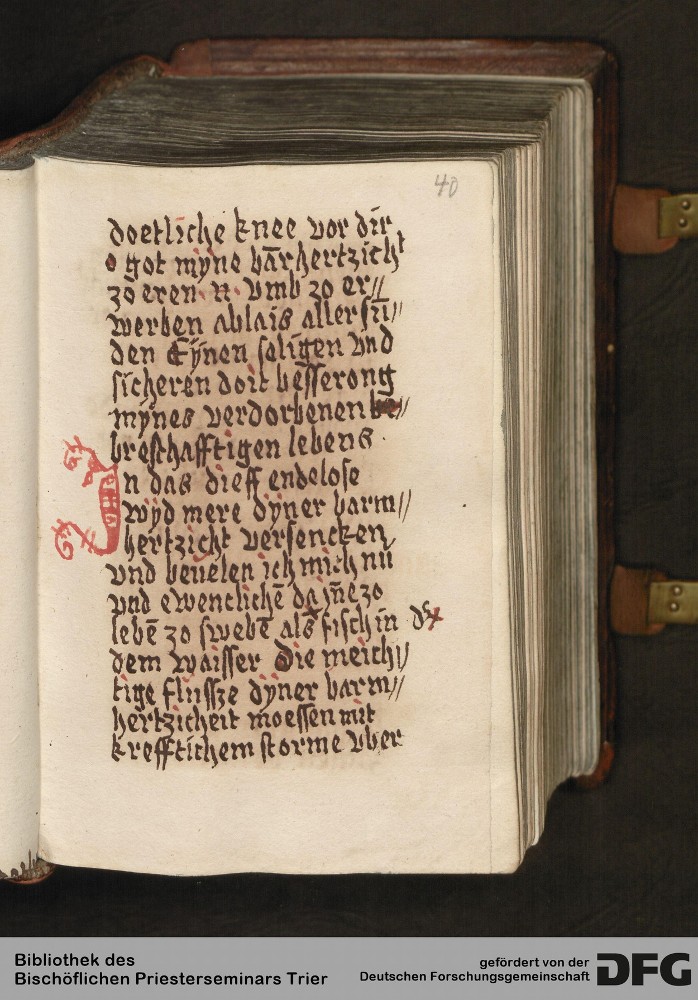 40
doetliche knee vor dir
o got myne barhertzicht
zo eren · n · vmb zo er//
werben ablais aller sū//
den Eynen saligen vnd
sicheren doit besserong
mynes verdorbenen be//
breshafftigen lebens
In das dieff endelose
wyd mere dyner barm//
hertzicht versencken
vnd beuelen ich mich nū
vnd ewentlichē da īne zo
lebē zo swebē als fisch in
dem waisser Die meich//
tige flussze dyner barm//
hertzicheit moessen mit
krefftichem storme vber
Bibliothek des
Bischöflichen Priesterseminars Trier
gefördert von der
Deutschen Forschungsgemeinschaft
DFG